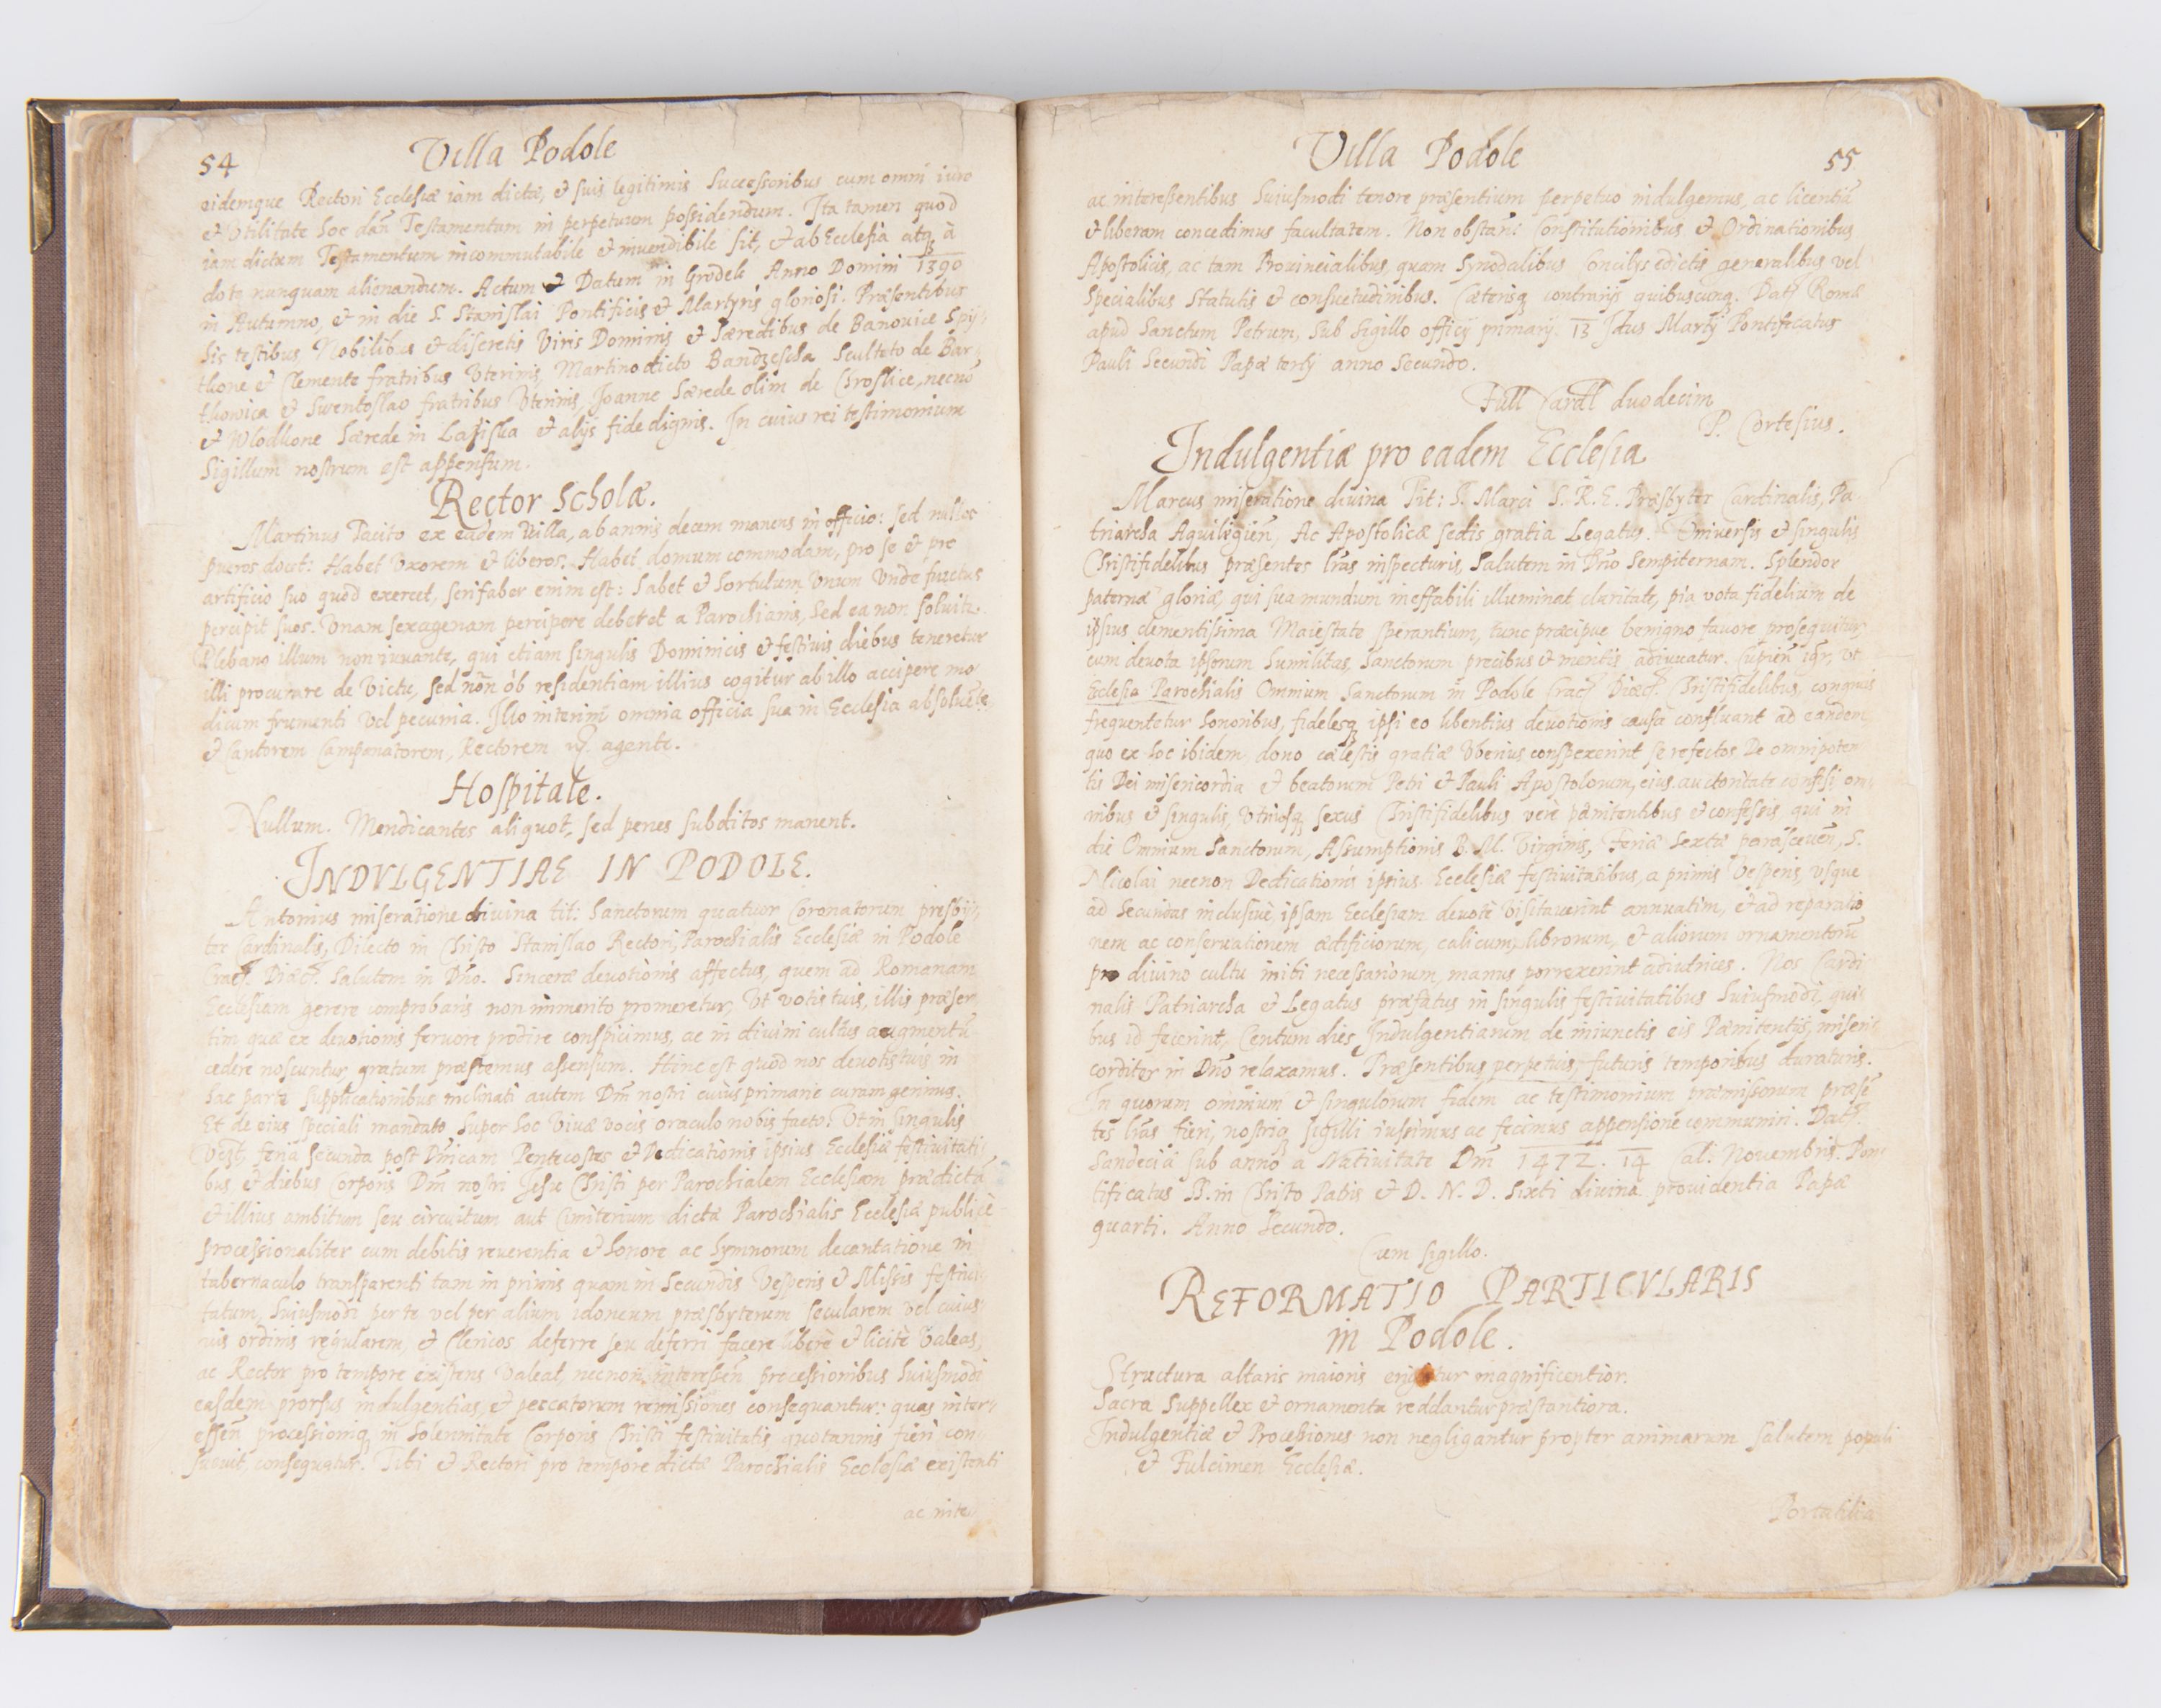 54
Villa Podole
eidemque Rectori Ecclesiæ iam dictæ, et suis legitimis Successoribus cum omni iure
et Utilitate hoc dañ Testamentum in perpetuum possidendum. Ita tamen quod
iam dictum Testamentum incommutabile et invendibile sit, et ab Ecclesia atq; à
dote nunquam alienandum. Actum et Datum in Grodek Anno Domini 1390
in Autumno, et in die S. Stanislai Pontificis et Martyris gloriosi. Præsentibus
his testibus, Nobilibus et discretis Viris Dominis et Hæredibus de Banovice Spy-
thone et Clemente fratribus Uterinis, Martino dicto Bandzescha Sculteto de Bar-
thowica et Swentoslao fratribus Uterinis, Joanne Hærede olim de Chroslice, necnõ
et Wlodkone Hærede in Lasisha et alijs fide dignis. In cuius rei testimonium
Sigillum nostrum est appensum.
Rector Scholæ.
Martinus Tacito ex eadem Villa, ab annis decem manens in officio: sed nullos
pueros docet: Habet Uxorem et liberos. Habet domum commodam, pro se et pro
artificio suo quod exercet, serifaber enim est: habet et hortulum Unum Unde fructus
percipit suos. Unam sexagenam percipere deberet a Parochianis, sed ea non solvitur.
Plebano illum non iuvante, qui etiam singulis Dominicis et festivis diebus teneretur
illi procurare de Victu, sed nõn ob residentiam illius cogitur ab illo accipere mo
dicum frumenti Vel pecunia. Illo interim omnia officia sua in Ecclesia absolvẽte
et Cantorem Campanatorem, Rectorem agente.
Hospitale.
Nullum. Mendicantes aliquot, sed penes subditos manent.
INDVLGENTIAE IN PODOLE.
Antonius miseratione divina tit: Sanctorum quatuor Coronatorum presbij-
ter Cardinalis, Dilecto in Christo Stanislao Rectori, Parochialis Ecclesiæ in Podole
Crac. Diæc. Salutem in Dño. Sinceræ devotionis affectus, quem ad Romanam
Ecclesiam gerere comprobaris non immerito promeretur, Ut votis tuis, illis præser
tim quæ ex devotionis fervore prodire conspicimus, ac in divini cultus augmentũ
cedere noscuntur, gratum præstemus assensum. Hinc est quod nos devotis tuis in
hac parte supplicationibus inclinati autem Dñi nostri cuius primarie curam gerimus.
Et de eius speciali mandato super hoc Vivæ vocis oraculo nobis facto: Ut in singulis
feria secunda post Dñicam Pentecostes et Dedicationis ipsius Ecclesiæ festivitati
bus, et diebus Corporis Dñi nostri Jesu Christi per Parochialem Ecclesiam prædictã
et illius ambitum seu circuitum aut Cimiterium dictæ Parochialis Ecclesiæ publicè
processionaliter cum debitis reverentia et honore ac hymnorum decantatione in
tabernaculo transparenti tam in primis quam in Secundis Vesperis et Missis festivi-
tatum, huiusmodi per te vel per alium idoneum præsbyterum secularem vel cuius-
vis ordinis regularem, et Clericos deferre seu deferri facere liberè et licitè Valeas,
ac Rector pro tempore existens Valeat, necnon interessen processionibus huiusmodi
easdem prorsus indulgentias, et peccatorum remissiones consequantur: quas inter-
essen processioniq; in Solennitate Corporis Christi festivitatis quotannis fieri con
suevit, consequatur. Tibi et Rectori pro tempore dictæ Parochialis Ecclesiæ existenti
ac inte
Villa Podole
55
ac interessentibus huiusmodi tenore præsentium perpetuo indulgemus, ac licentiã
et liberam concedimus facultatem. Non obstan: Constitutionibus et Ordinationibus
Apostolicis, ac tam Provincialibus, quam Synodalibus Concilijs edictis generalibus, vel
Specialibus Statutis et consuetudinibus. Cæterisq; contrarijs quibuscunq;. Datt Romæ
apud Sanctum Petrum, Sub Sigillo officij primarij. 13 Idus Martij Pontificatus
Pauli Secundi Papæ tertij anno Secundo.
Full Cardl duodecim
P. Cortesius.
Indulgentiæ pro eadem Ecclesia
Marcus miseratione divina Tit: S. Marci S. R. E. Præsbyter Cardinalis, Pa-
triarcha Aquilegieñ, Ac Apostolicæ sedis gratia Legatus. Universis et singulis
Christifidelibus præsentes lras inspecturis, Salutem in Dño Sempiternam. Splendor
paternæ gloriæ, qui sua mundum ineffabili illuminat claritate, pia vota fidelium de
ipsius clementissima Maiestate sperantium, tunc præcipue benigno favore prosequitur,
cum devota ipsorum humilitas, Sanctorum precibus et meritis adiuvatur. Cupien igr, Ut
Ecclesia Parochialis Omnium Sanctorum in Podole Crac. Diæc. Christifidelibus, congruis
frequentetur honoribus, fidelesq; ipsi eo libentius devotionis causa confluant ad eandem
quo ex hoc ibidem, dono cælestis gratiæ Uberius conspexerint se refectos. De omnipoten
tis Dei misericordia et beatorum Petri et Pauli Apostolorum, eius auctoritate confisi om-
nibus et singulis, Utriusq; sexus Christifidelibus verè pænitentibus et confessis, qui in
die Omnium Sanctorum, Assumptionis B. M. Virginis, Feriæ Sextæ parasceven, S.
Nicolai necnon Dedicationis ipsius Ecclesiæ festivitatibus, a primis Vesperis, usque
ad Secundas inclusivè, ipsam Ecclesiam devotè Visitaverint annuatim, et ad reparatio
nem ac conservationem ædificiorum, calicum, librorum, et aliorum ornamentorũ
pro divino cultu inibi necessariorum, manus porrexerint adiutrices. Nos Cardi
nalis Patriarcha et Legatus præfatus in singulis festivitatibus huiusmodi, qui-
bus id fecerint, Centum dies Indulgentiarum de iniunctis eis Pænitentijs, miseri-
corditer in Dño relaxamus. Præsentibus perpetuis, futuris temporibus duraturis.
In quorum omnium et singulorum fidem ac testimonium præmissorum præsẽ
tes lras fieri, nostriq; sigilli iussimus ac fecimus appensione communiri. Dat.
Sandeciæ sub anno a Nativitate Dñi 1472. 14 Cal. Novembris. Pon
tificatus SS. in Christo Patris et D. N. D. Sixti divina providentia Papæ
quarti. Anno Secundo.
Cum sigillo.
REFORMATIO PARTICVLARIS
in Podole.
Structura altaris maioris erigatur magnificentior.
Sacra Suppellex et ornamenta reddantur præstantiora.
Indulgentiæ et Processiones non negligantur propter animarum salutem populi
et Fulcimen Ecclesiæ.
Portatilia